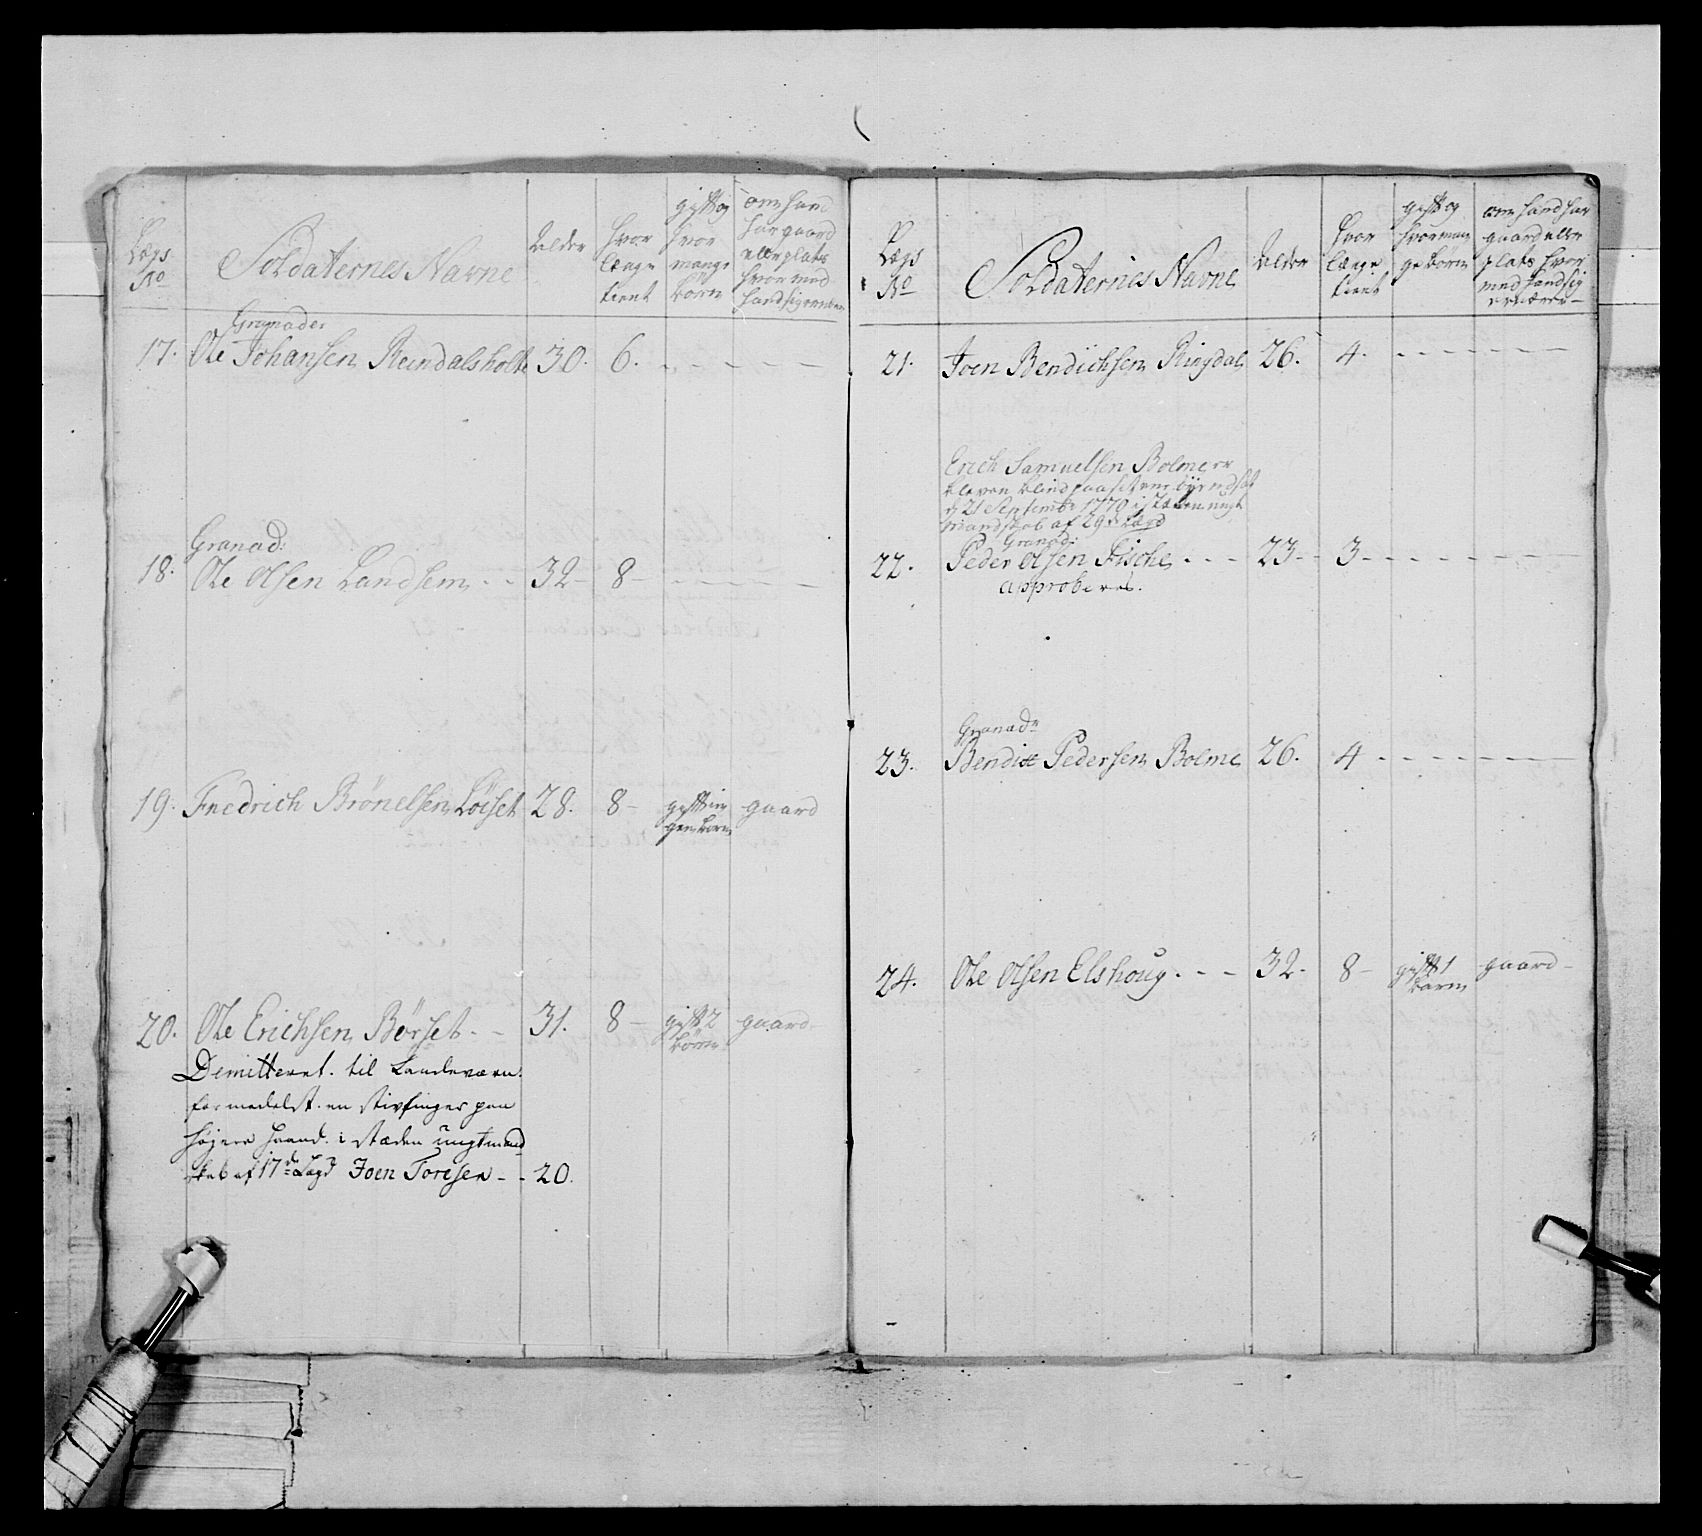 Lægs No
Soldaternes Navne
Alder
hvor længe tient
gift og hvor mange børn
om hand har gaard eller plats hvor med hand sig ernærer
Granader
17. Ole Johansen Rundalsholte 30. 6. - - - - -
Granad:
18. Ole Olsen Landsem - - 32 - 8 - - - - -
19. Friedrich Brönelsen Löiset 28. 8 - gift ingen børn gaard
20. Ole Erichsen Börset - - 31. 8 - gift 2 børn gaard
Demitteret til Landeværn
formedelst en stiv finger paa
højere haand. i stæden ungt mand
skab af 17de Lægd Joen Toresen - - 20.
Lægs No
Soldaternes Navne
Alder
hvor længe tient
gift og hvor mange børn
om hand har gaard eller plats hvor med hand sig ernærer
21. Joen Bendichsen Ringdal 26. 4. - - - - -
Erich Samuelsen Bolme er
bleven blind paa det ene øye
d 21 Septembr 1770 i stæden ungt
mandskab af 29de Lægd
Granad:
22. Peder Olsen Fische - - - 23 - - 3 - - - - -
approberes.
Granadr
23. Bendix Pedersen Bolme 26. 4 - - - - -
24. Ole Olsen Elshoug - - - 32 - 8 - gift 1 barn gaard -